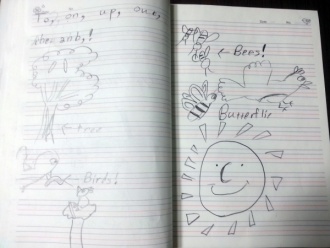 To, on, up, out,
← tree
← Birds!
← Bees!
Butterflie